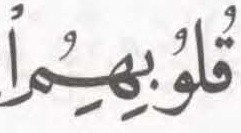 قُلُوبِهِمُ اْ